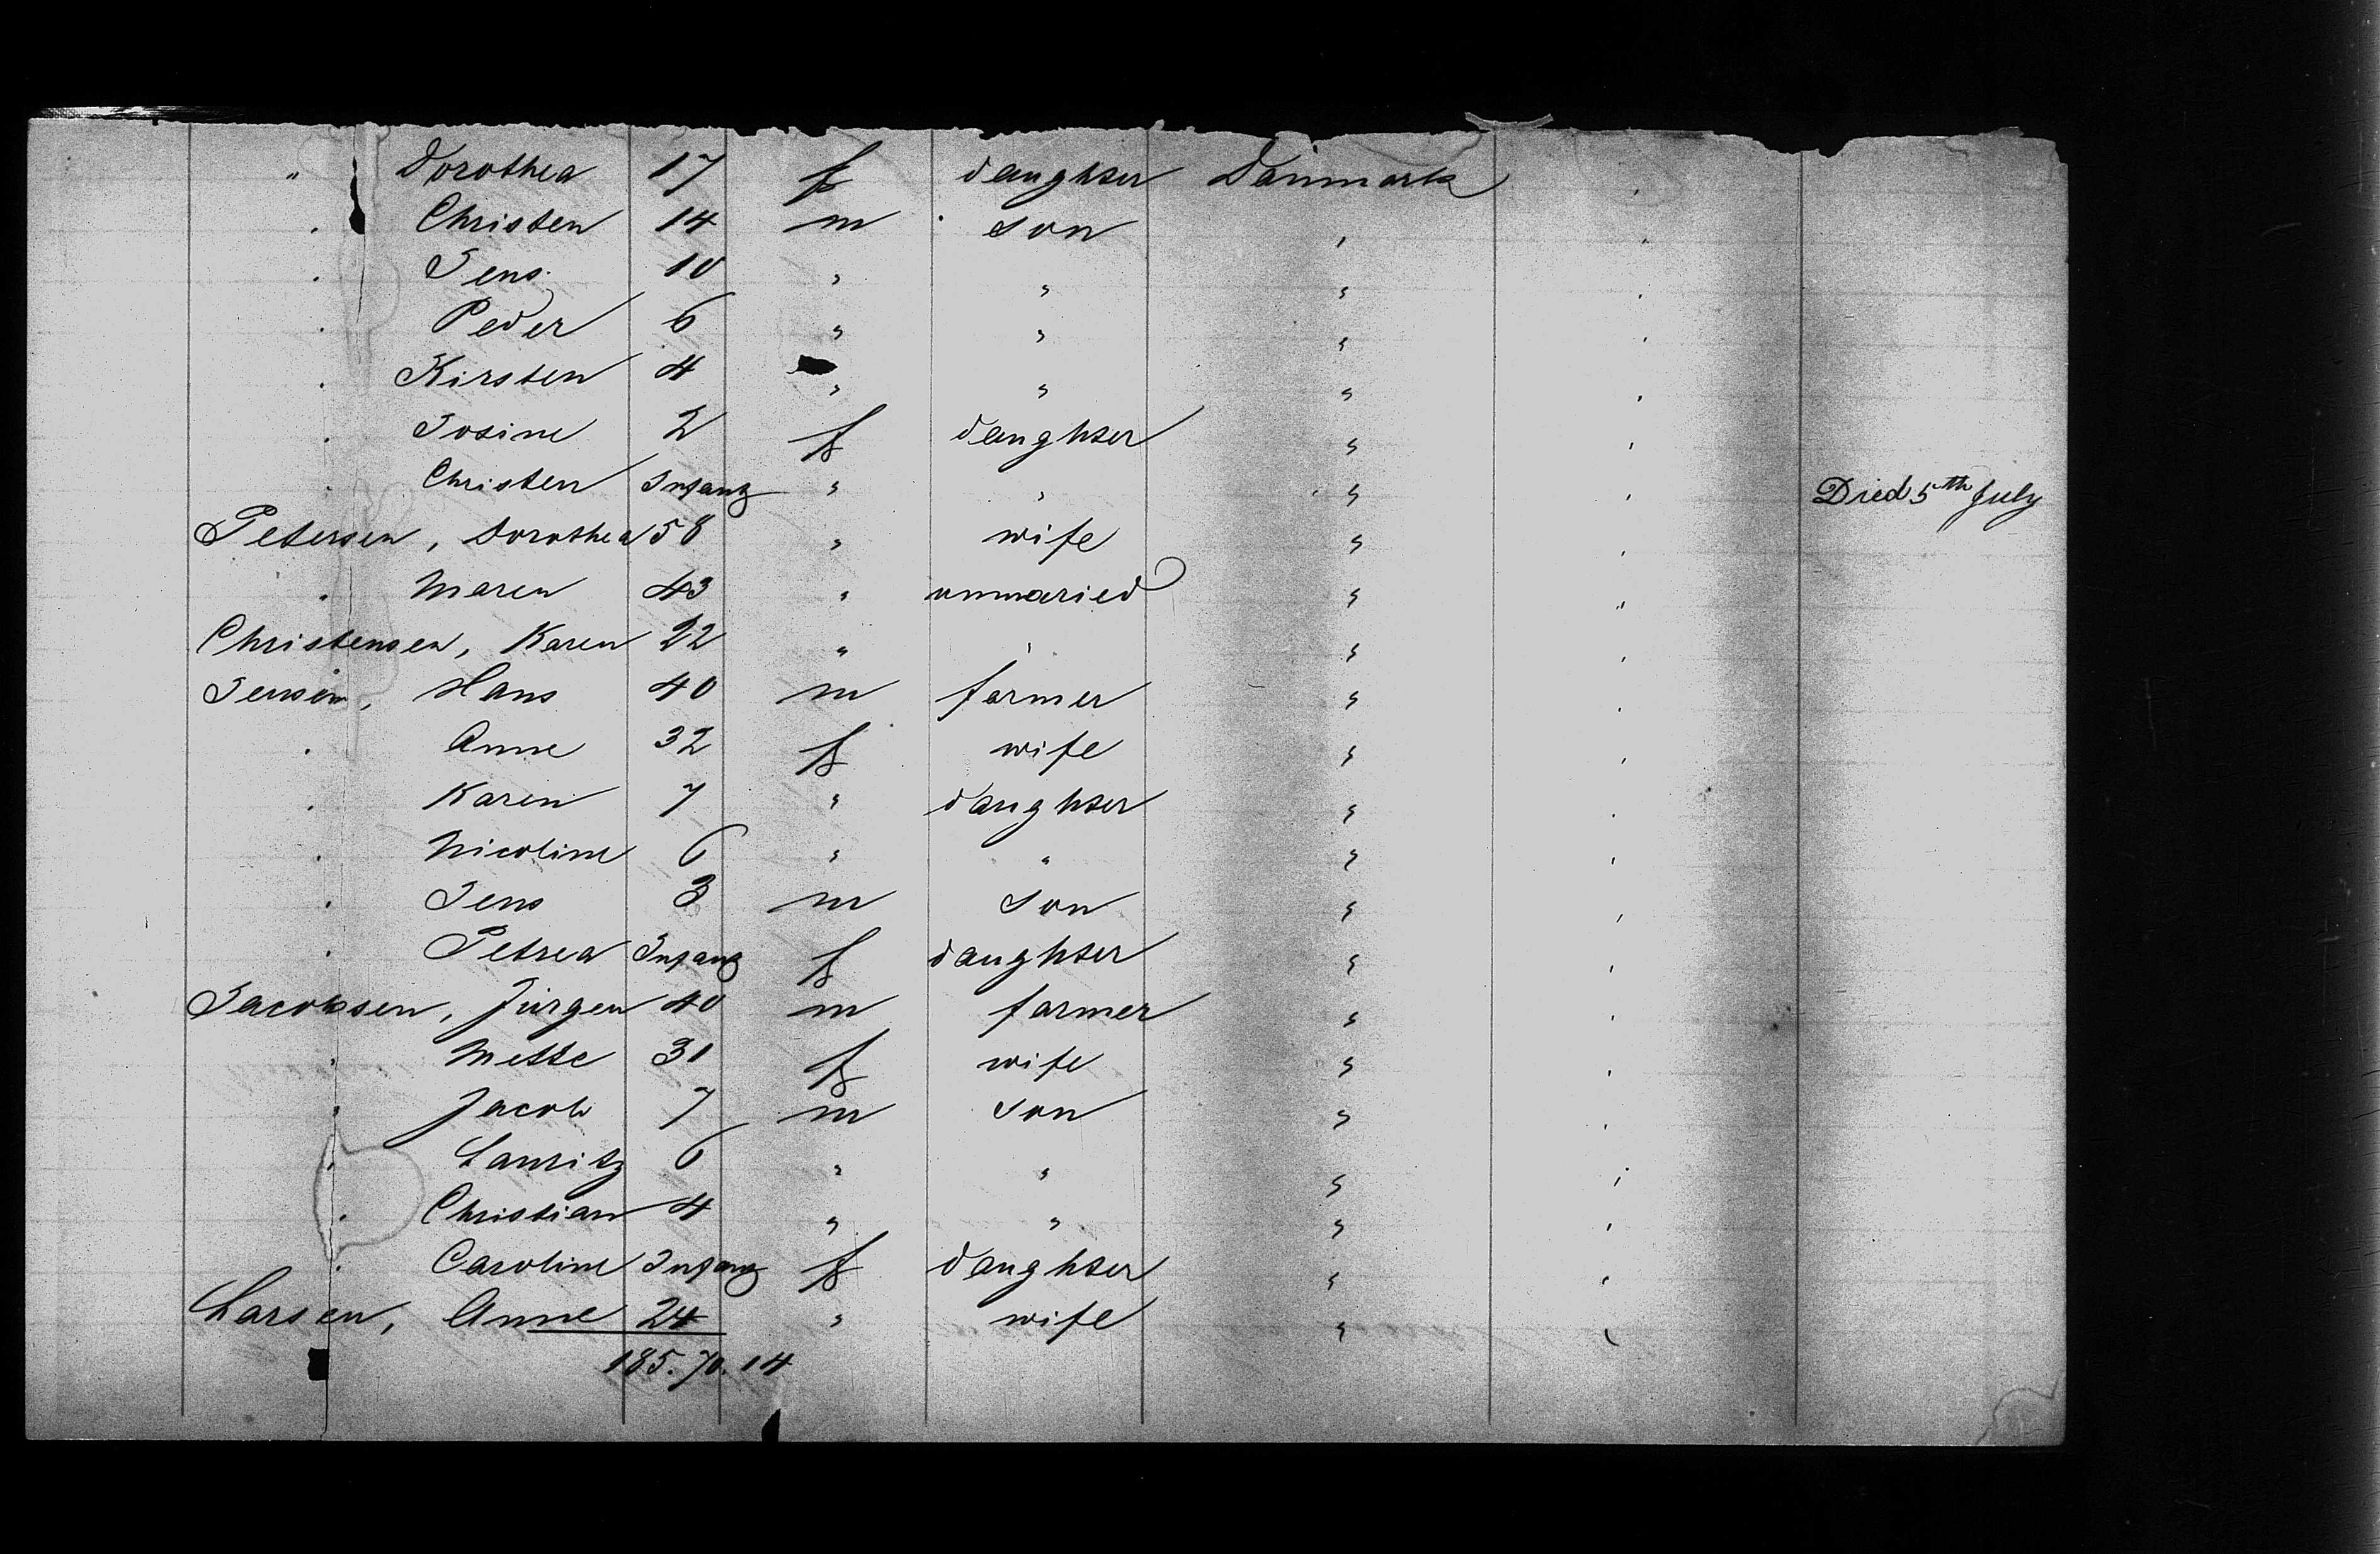 " Dorothea 17 f daughter Dänmark "
" Christen 14 m son " "
" Jens 10 " " " "
" Peder 6 " " " "
" Kirsten 4 " " " "
" Josine 2 f daughter " "
" Christen Infant " " " " Died 5th July
Petersen, Dorothea 58 " wife " "
" Maren 43 " unmaried " "
Christensen, Karen 22 " " " "
Jensen, Hans 40 m farmer " "
" Anne 32 f wife " "
" Karen 7 " daughter " "
" Nicoline 6 " " " "
" Jens 3 m son " "
" Petrea Infant f daughter " "
Jacobsen, Jürgen 40 m farmer " "
" Mette 31 f wife " "
" Jacob 7 m son " "
" Lauritz 6 " " " "
" Christian 4 " " " "
" Caroline Infant f daughter " "
Larsen, Anne 24 " wife " "
185. 70. 14